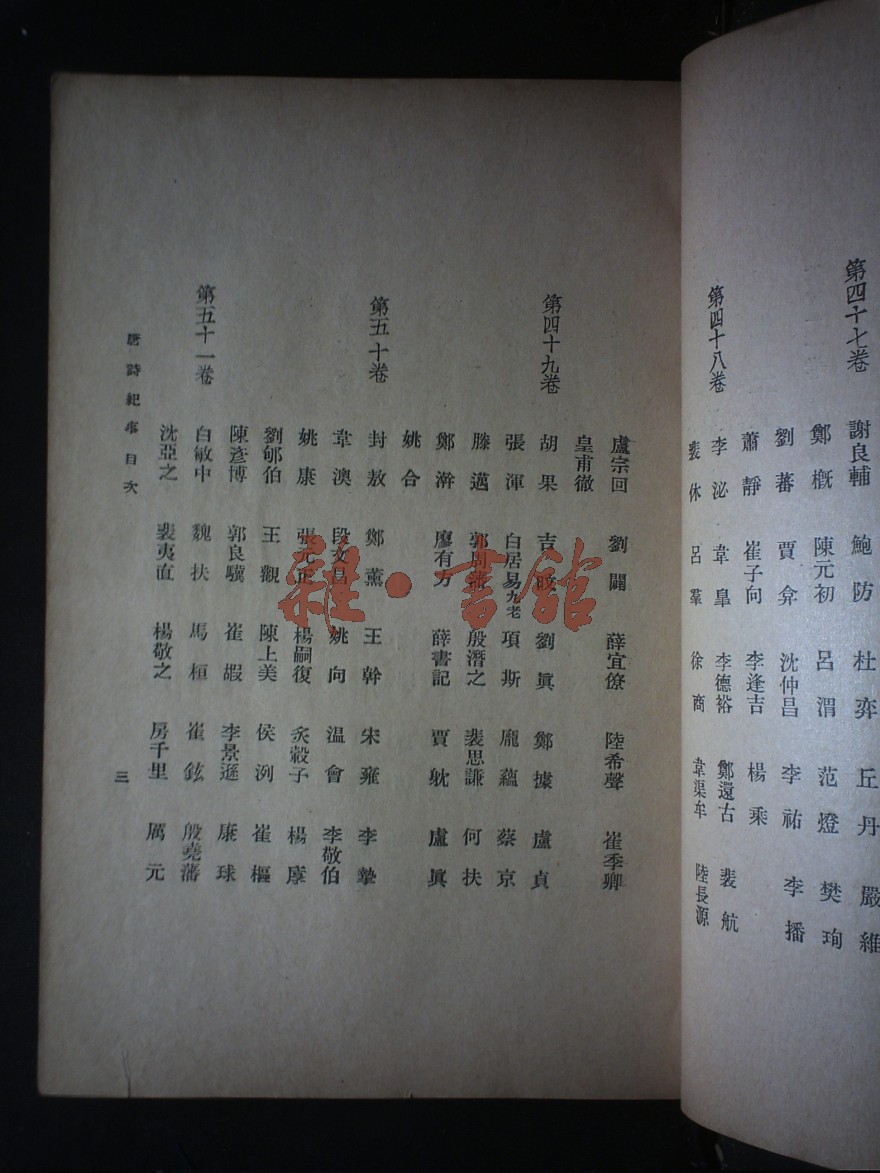 第四十七卷
謝良輔 鮑防 杜弈 丘丹 嚴維
鄭槪 陳元初 呂渭 范燈 樊珣
劉蕃 賈弇 沈仲昌 李祐 李播
蕭靜 崔子向 李逢吉 楊乘
第四十八卷
李泌 韋皐 李德裕 鄭還古 裴航
裴休 呂羣 徐商 韋渠牟 陸長源
盧宗回 劉闢 薛宜僚 陸希聲 崔季卿
皇甫徹
第四十九卷
胡果 吉皎 劉眞 鄭據 盧貞
張渾 白居易九老 項斯 龐蘊 蔡京
滕邁 郭周藩 殷潛之 裴思謙 何扶
鄭澣 廖有方 薛書記 賈躭 盧眞
姚合
第五十卷
封敖 鄭薰 王幹 宋雍 李摯
韋澳 段文昌 姚向 溫會 李敬伯
姚康 張元正 楊嗣復 炙轂子
劉郇伯 王觀 陳上美 侯洌 崔樞
陳彥博 郭良驥 崔嘏 李景遜 康球
第五十一卷
白敏中 魏扶 馬植 崔鉉 殷堯藩
沈亞之 裴夷直 楊敬之 房千里 厲元
唐詩紀事目次
三
雜·書館